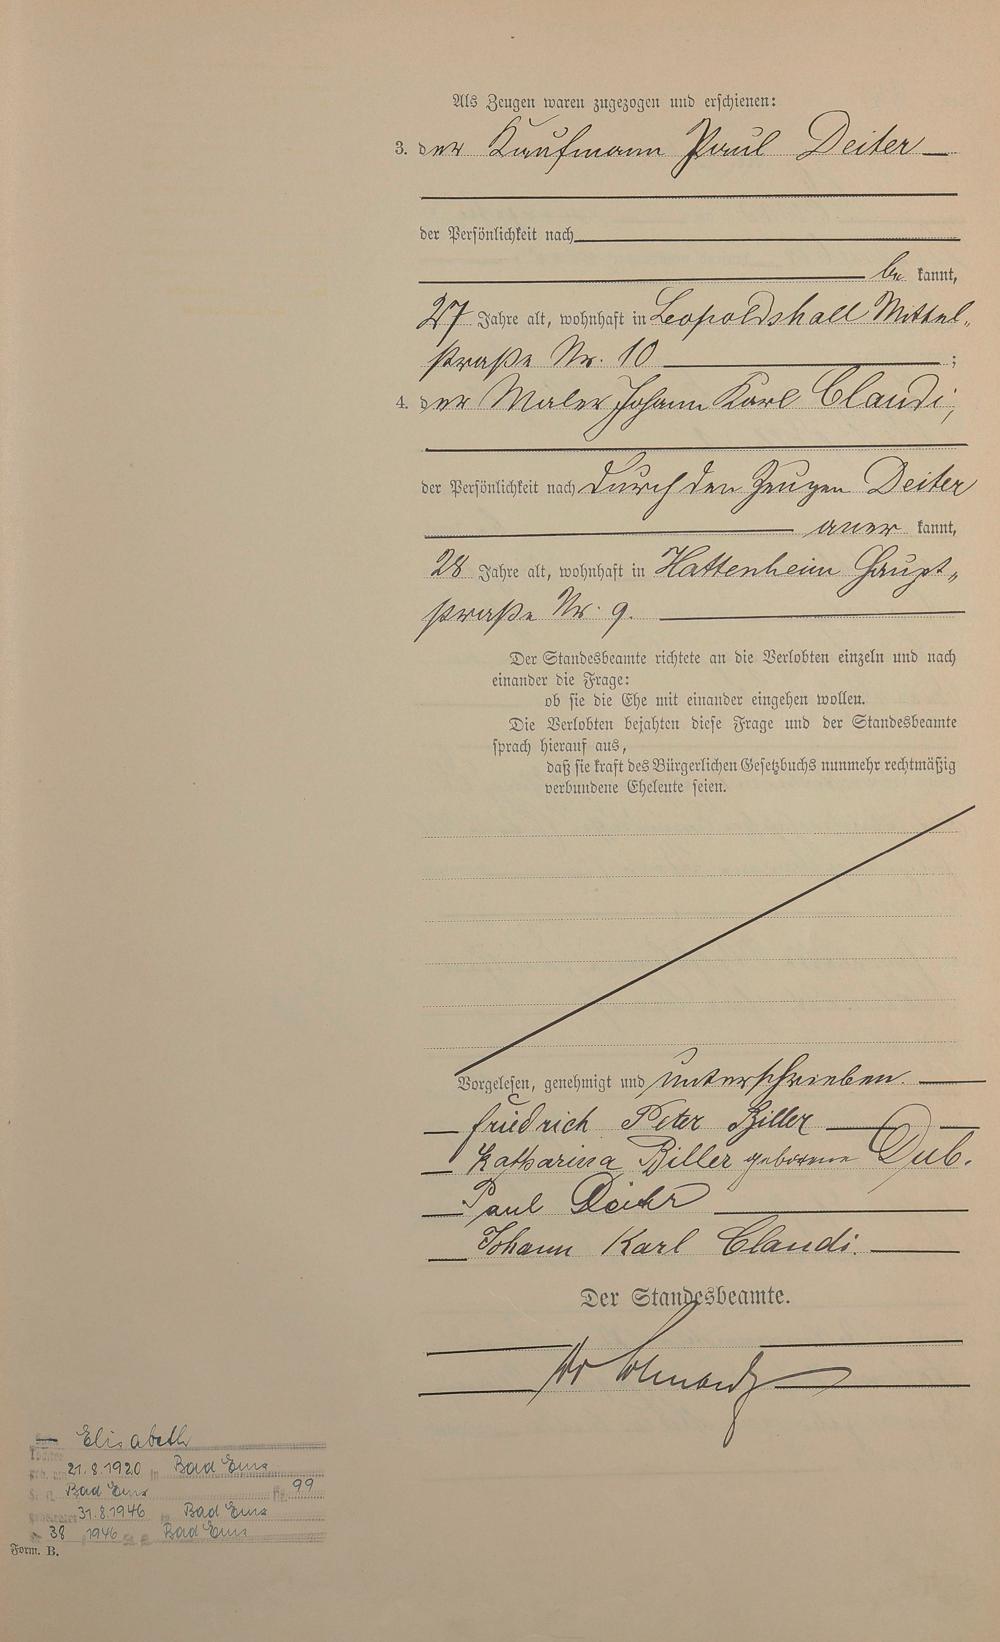 Als Zeugen waren zugezogen und erschienen:
3. der Kaufmann Paul Deiter
der Persönlichkeit nach
be kannt,
27 Jahre alt, wohnhaft in Leopoldshall Mittel„
straße Nr. 10 ;
4. der Maler Johann Karl Claudi,
der Persönlichkeit nach durch den Zeugen Deiter
aner kannt,
28 Jahre alt, wohnhaft in Hattenheim Haupt„
straße Nr. 9.
Der Standesbeamte richtete an die Verlobten einzeln und nach
einander die Frage:
ob sie die Ehe mit einander eingehen wollen.
Die Verlobten bejahten diese Frage und der Standesbeamte
sprach hierauf aus,
daß sie kraft des Bürgerlichen Gesetzbuchs nunmehr rechtmäßig
verbundene Eheleute seien.
Vorgelesen, genehmigt und unterschrieben.
Friedrich Peter Biller
Katharina Biller geborene Dub.
Paul Deiter
Johann Karl Claudi.
Der Standesbeamte.
Elisabeth
21.8.1920 in Bad Ems
Bad Ems Nr. 99
31.8.1946 in Bad Ems
38 1946 Bad Ems
Form. B.